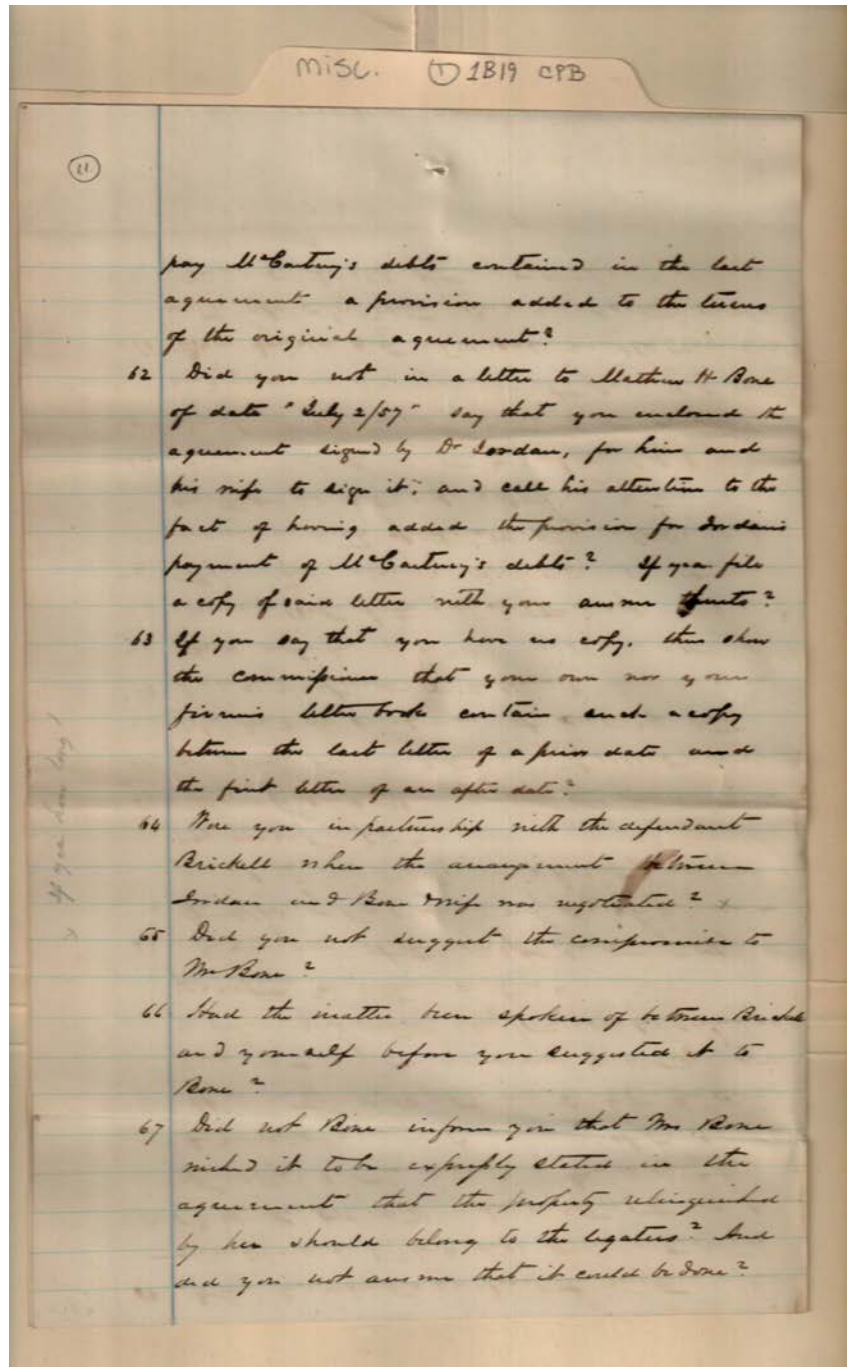 misc. ① 1B19 CPB
11
pay McCartney's debts contained in the last
agreement a provision added to the terms
of the original agreement?
62 Did you not in a letter to Mathew H Bone
of date "July 2/57" say that you enclosed the
agreement signed by Dr Jordan, for him and
his wife to sign it; and call his attention to the
fact of having added the provision for Jordan's
payment of McCartney's debts? If yea file
a copy of said letter with your answer
63 If you say that you have no copy, then show
the commissioner that your own nor your
firm's letter book contain such a copy
between the last letter of a prior date and
the first letter of an after date?
64 Were you in partnership with the defendant
Brickell when the arrangement between
Jordan and Bone & wife was negotiated? x
x If yea how long?
65 Did you not suggest the compromise to
Mr Bone?
66 Had the matter been spoken of between Brickell
and yourself before you suggested it to
Bone?
67 Did not Bone inform you that Mrs Bone
wished it to be expressly stated in the
agreement that the property relinquished
by her should belong to the legatees? And
did you not answer that it could be done?